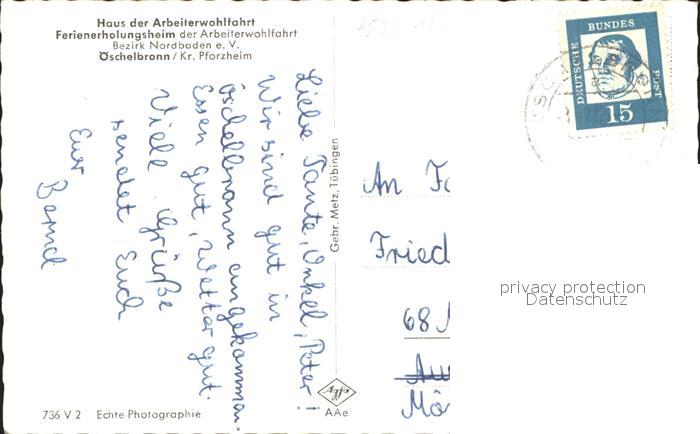 Haus der Arbeiterwohlfahrt
Ferienerholungsheim der Arbeiterwohlfahrt
Bezirk Nordbaden e. V.
Öschelbronn / Kr. Pforzheim
Liebe Tante, Onkel, Peter!
Wir sind gut in
Öschelbronn angekommen.
Essen gut, Wetter gut.
Viele Grüße
sendet Euch
Euer
Bernd
Gebr. Metz, Tübingen
DEUTSCHE BUNDES POST
15
An Fa
Fried
68
Mö
privacy protection
Datenschutz
Agfa
AAe
736 V 2 Echte Photographie